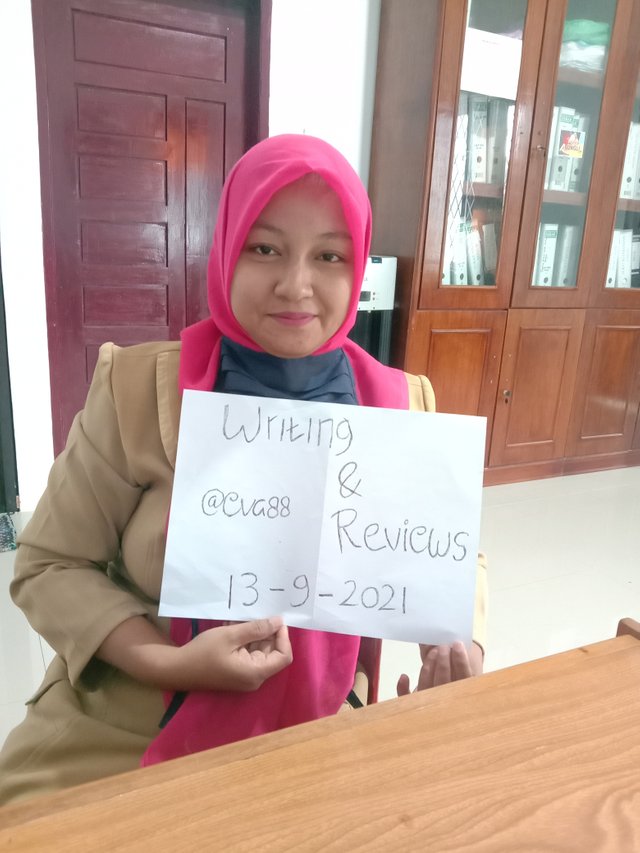 Writing
&
@eva88
Reviews
13-9-2021